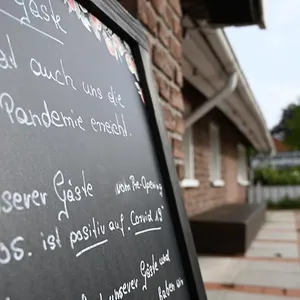 Gäste
at auch uns die
Pandemie erreicht.
serer Gäste vom Pre-Opening
os. ist positiv auf Covid 19
unserer Gäste und
haben wir